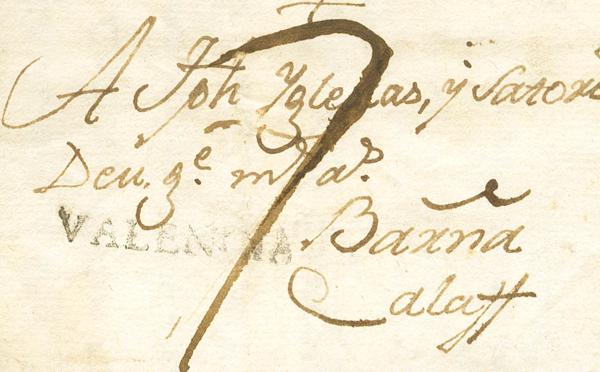 A Jph Yglesias, y Satorr
Deu. ge. ms as.
VALENCIA
Barña
Calaff
7